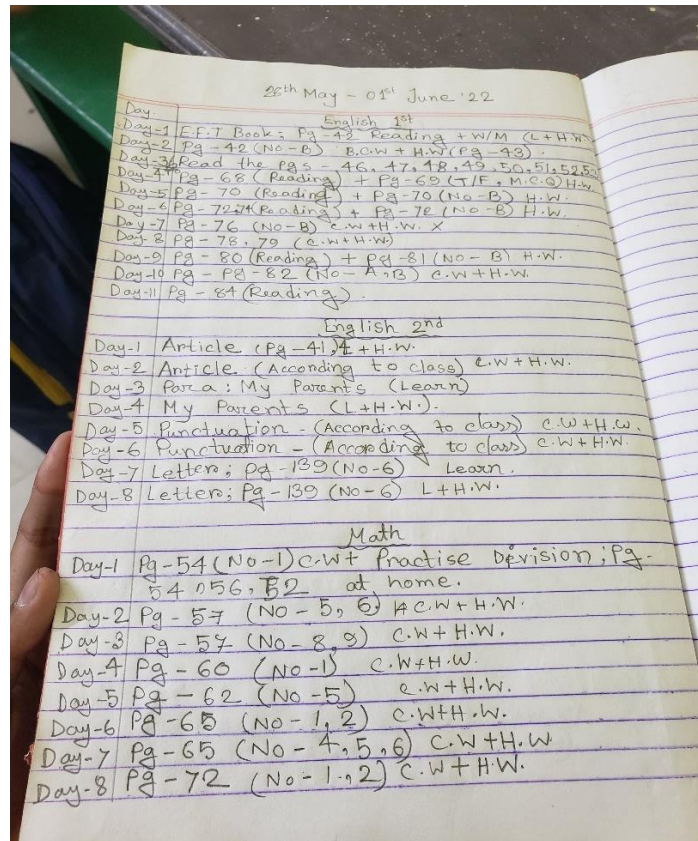 28th May - 01st June '22
Day
English 1st
Day-1 E.F.T Book; Pg-42 Reading + W/M (L+H.W)
Day-2 Pg-42 (No-B) B.C.W + H.W (Pg-43).
Day-3 Read the pgs - 46, 47, 48, 49, 50, 51, 52, 53
Day-4 Pg-68 (Reading) + Pg-69 (T/F, M.C.Q) H.W.
Day-5 Pg-70 (Reading) + Pg-70 (No-B) H.W.
Day-6 Pg-72,74 (Reading) + Pg-72 (No-B) H.W.
Day-7 Pg-76 (No-B) C.W + H.W. X
Day-8 Pg-78, 79 (C.W+H.W)
Day-9 Pg-80 (Reading) + Pg-81 (No-B) H.W.
Day-10 Pg-Pg-82 (No-A,B) C.W+H.W.
Day-11 Pg-84 (Reading).
English 2nd
Day-1 Article (Pg-41) L+H.W.
Day-2 Article (According to class) C.W+H.W.
Day-3 Para: My Parents (Learn)
Day-4 My Parents (L+H.W.).
Day-5 Punctuation - (According to class) C.W+H.W.
Day-6 Punctuation - (According to class) C.W+H.W.
Day-7 Letter; Pg-139 (No-6) Learn.
Day-8 Letter; Pg-139 (No-6) L+H.W.
Math
Day-1 Pg-54 (No-1) C.W+ Practise Devision; Pg-
54, 56, 52 at home.
Day-2 Pg-57 (No-5, 6) C.W+H.W.
Day-3 Pg-57 (No-8, 9) C.W+H.W.
Day-4 Pg-60 (No-1) C.W+H.W.
Day-5 Pg-62 (No-5) C.W+H.W.
Day-6 Pg-65 (No-1, 2) C.W+H.W.
Day-7 Pg-65 (No-4, 5, 6) C.W+H.W
Day-8 Pg-72 (No-1, 2) C.W+H.W.